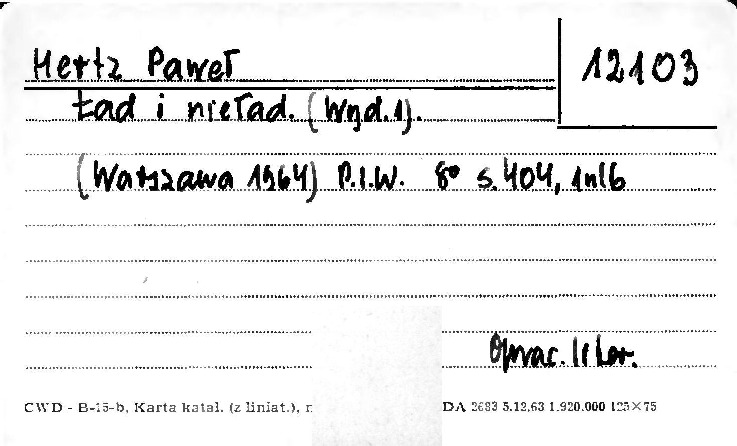 Hertz Paweł
12103
Ład i nieład. (Wyd. 1).
(Warszawa 1964) P.I.W. 8° s. 404, 1 nlb
Oprac. Il Lor.
CWD - B-15-b, Karta katal. (z liniat.), DA 2683 5.12.63 1.920.000 125×75